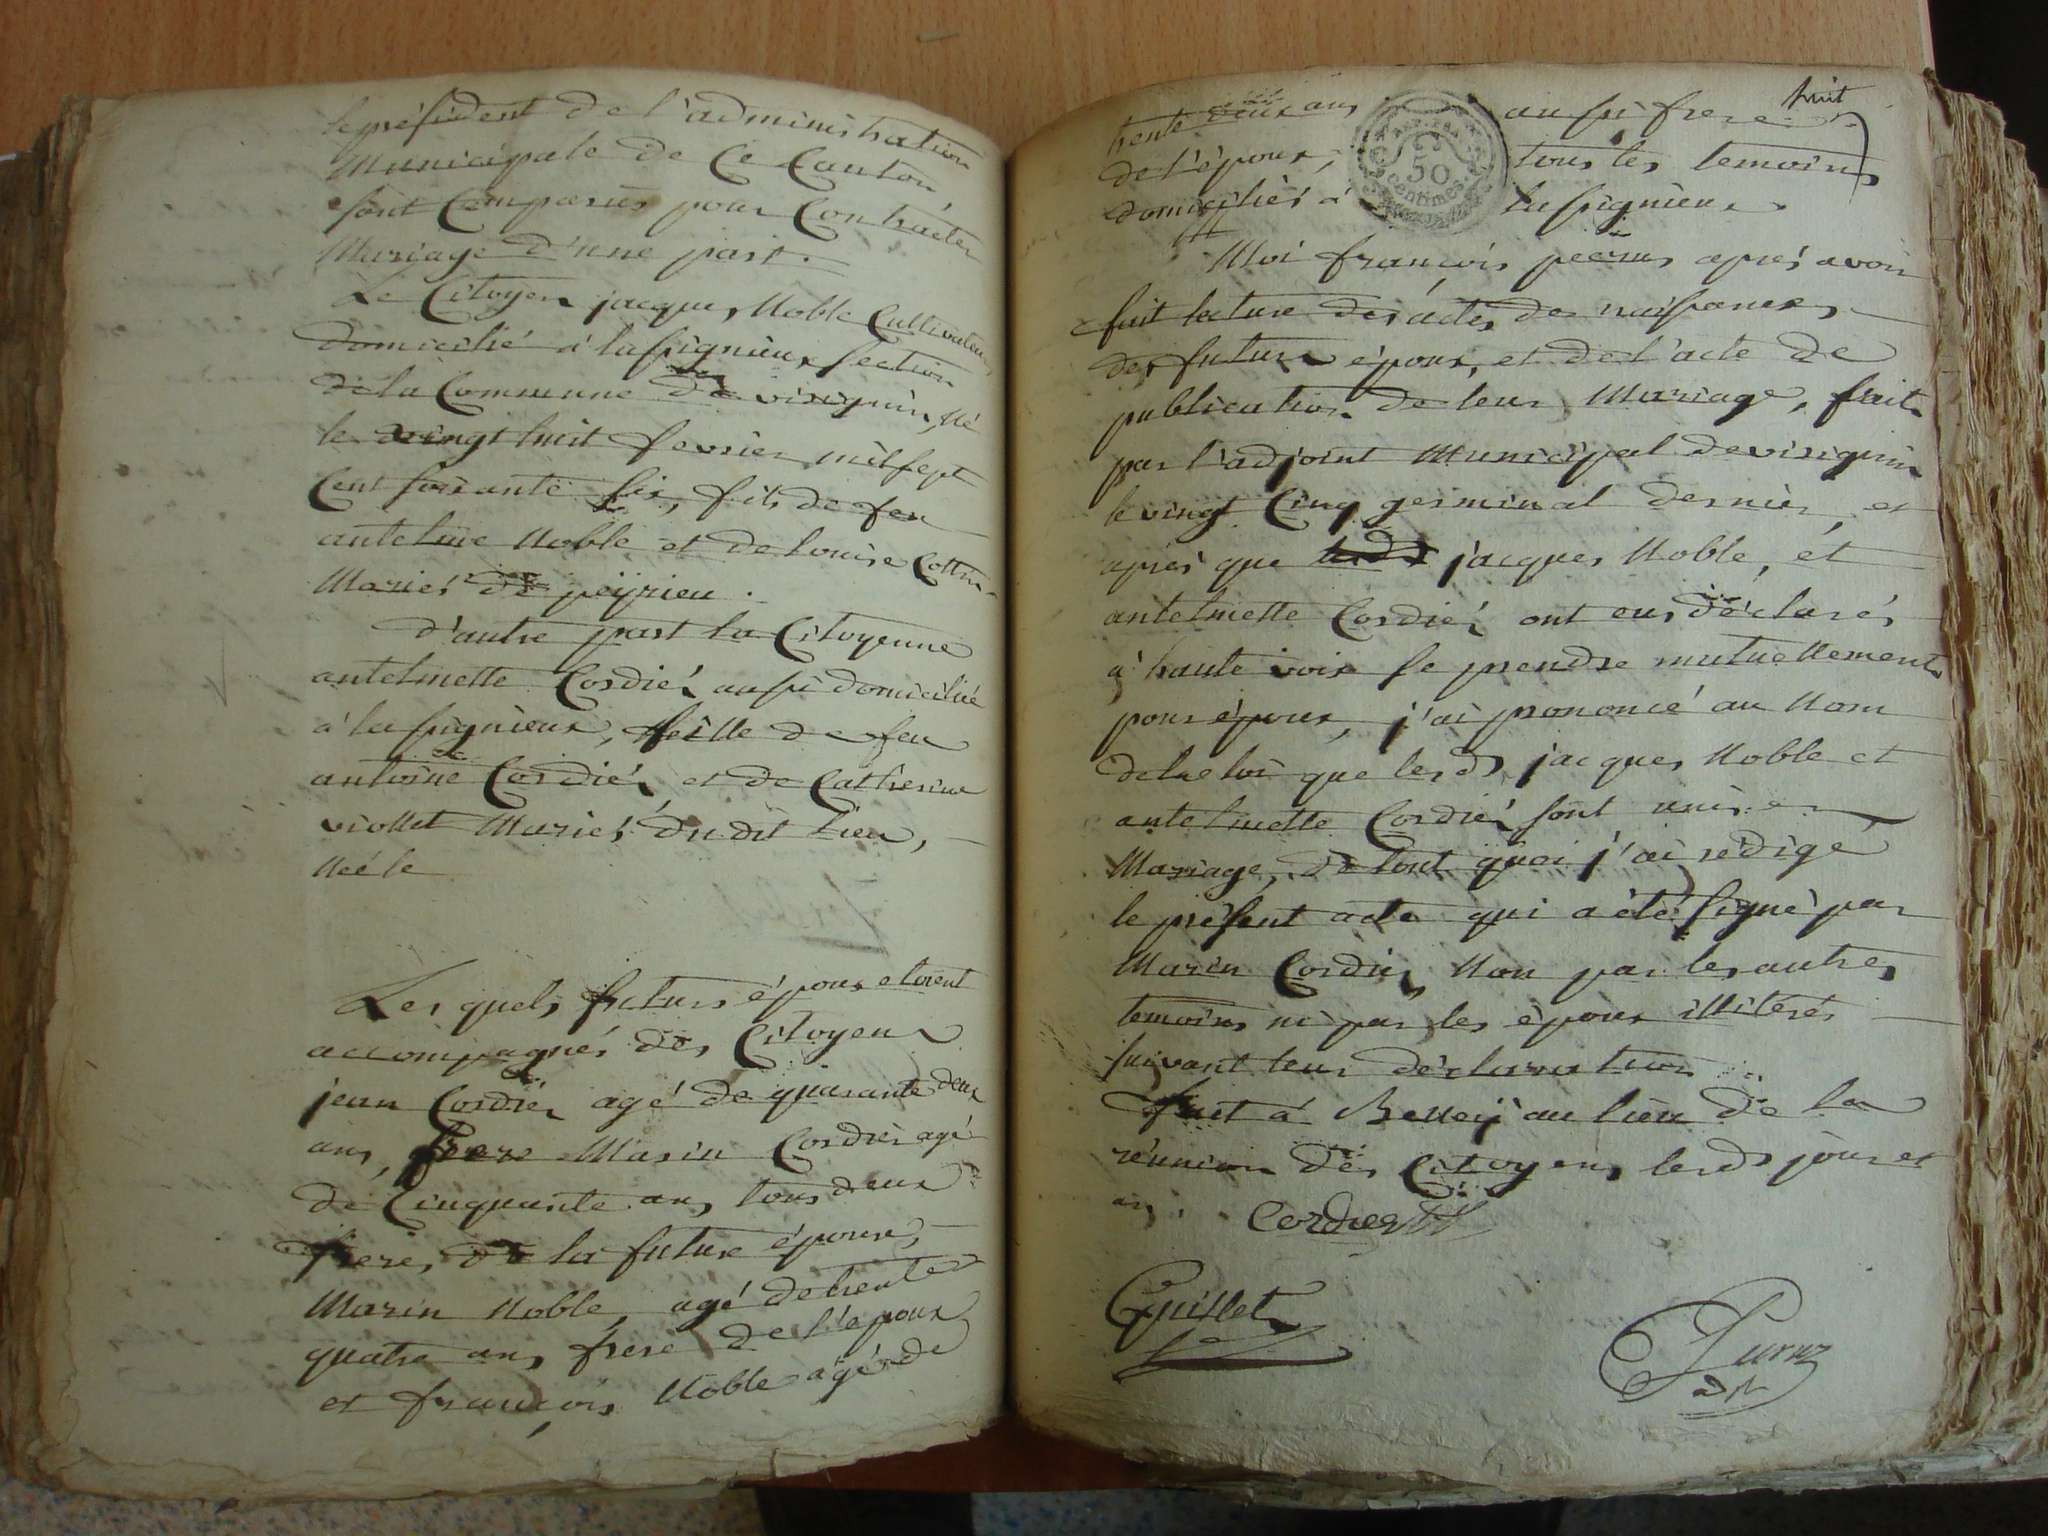 le président de l'administration
Municipale de Ce Canton
sont Comparus pour Contracter
Mariage d'une part.
Le Citoyen jacques Noble Cultivateur
domicilié à la section
de la Commune de virignin, Né
le vingt huit fevrier mil sept
Cent soixante six, fils de feu
antelme Noble et de louise Cottin
Mariés de peÿrieu.
d'autre part la Citoyenne
antelmette Cordiér aussi domiciliée
à la, feille de feu
antoine Cordiér et de Catherine
viollet Mariés du dit lieu,
Née le
Les quels futurs époux etoient
accompagnés des Citoyens
jean Cordiér agé de quarante deux
ans, Marin Cordiér agé
de Cinquante ans tous deux
freres de la future épouse,
Marin Noble agé de trente
quatre ans frere de l'époux
et françois Noble agé de
huit
trente deux ans aussi frere
de l'époux, tous les temoins
domiciliés à
50
centimes
Moi françois après avoir
fait lecture des actes de naissances
des futurs époux, et de l'acte de
publication de leur Mariage, fait
par l'adjoint Municipal de virignin
le vingt Cinq germinal dernier, et
après que jacques Noble, et
antelmette Cordiér ont eus déclarés
à haute voix se prendre mutuellement
pour époux, j'ai prononcé au Nom
de la loi que lesds jacques Noble et
antelmette Cordiér sont unis en
Mariage, de tout quoi j'ai rédigé
le présent acte qui a été signé par
Marin Cordier Non par les autres
temoins ni par les époux illitérés
suivant leur déclaration
fait à Belleÿ au lieu de la
réunion des Citoyens lesds jour et
an.
Cordier
Guillet